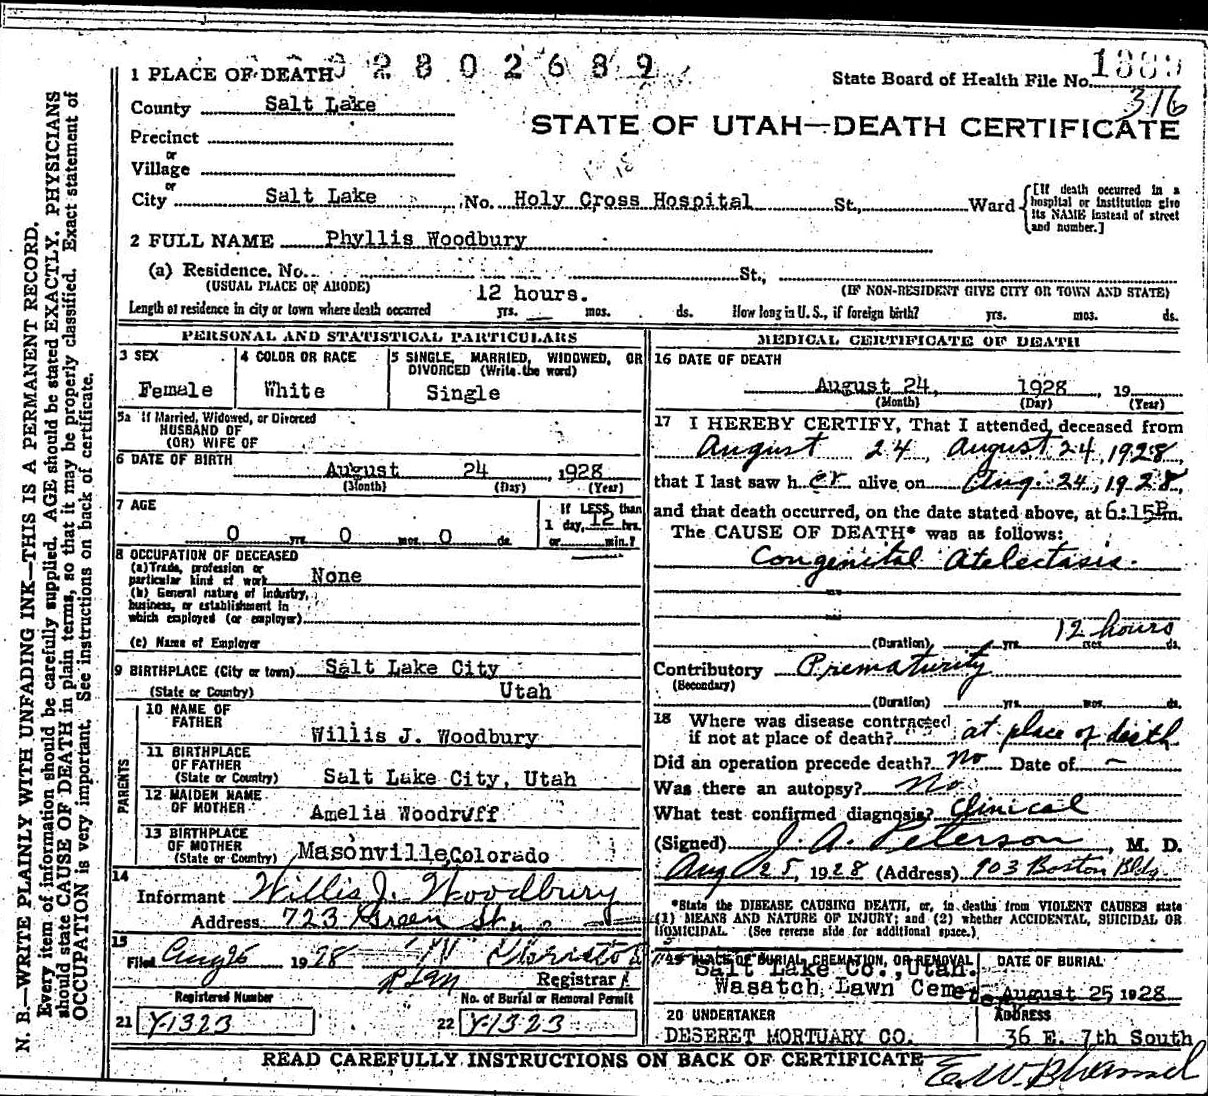 N. B.—WRITE PLAINLY WITH UNFADING INK—THIS IS A PERMANENT RECORD.
Every item of information should be carefully supplied. AGE should be stated EXACTLY. PHYSICIANS
should state CAUSE OF DEATH in plain terms, so that it may be properly classified. Exact statement of
OCCUPATION is very important. See instructions on back of certificate.
1 PLACE OF DEATH 02802689
State Board of Health File No.
316
County Salt Lake
STATE OF UTAH—DEATH CERTIFICATE
Precinct
or
Village
18
or
City Salt Lake No. Holy Cross Hospital St., Ward
[If death occurred in a
hospital or institution give
its NAME instead of street
and number.]
2 FULL NAME Phyllis Woodbury
(a) Residence. No. St.,
(USUAL PLACE OF ABODE) (IF NON-RESIDENT GIVE CITY OR TOWN AND STATE)
12 hours.
Length of residence in city or town where death occurred yrs. mos. ds. How long in U. S., if foreign birth? yrs. mos. ds.
PERSONAL AND STATISTICAL PARTICULARS
3 SEX 4 COLOR OR RACE 5 SINGLE, MARRIED, WIDOWED, OR
DIVORCED (Write the word)
Female White Single
5a If Married, Widowed, or Divorced
HUSBAND OF
(OR) WIFE OF
6 DATE OF BIRTH
August 24, 1928
(Month) (Day) (Year)
7 AGE
If LESS than
1 day, 12 hrs.
0 yrs. 0 mos. 0 ds. or min.?
8 OCCUPATION OF DECEASED
(a) Trade, profession or
particular kind of work None
(b) General nature of industry,
business, or establishment in
which employed (or employer)
(c) Name of Employer
9 BIRTHPLACE (City or town) Salt Lake City
(State or Country) Utah
PARENTS
10 NAME OF
FATHER
Willis J. Woodbury
11 BIRTHPLACE
OF FATHER
(State or Country) Salt Lake City, Utah
12 MAIDEN NAME
OF MOTHER Amelia Woodruff
13 BIRTHPLACE
OF MOTHER
(State or Country) Masonville, Colorado
14
Informant Willis J. Woodbury
Address 723 Green St.
15
Filed Aug 26 1928
Registrar
Registered Number No. of Burial or Removal Permit
21 Y-1323 22 Y-1323
MEDICAL CERTIFICATE OF DEATH
16 DATE OF DEATH
August 24, 1928, 19
(Month) (Day) (Year)
17 I HEREBY CERTIFY, That I attended deceased from
August 24, August 24, 1928,
that I last saw her alive on Aug. 24, 1928,
and that death occurred, on the date stated above, at 6:15 P.m.
The CAUSE OF DEATH* was as follows:
Congenital Atelectasis.
12 hours
(Duration) yrs. mos. ds.
Contributory Prematurity
(Secondary)
(Duration) yrs. mos. ds.
18 Where was disease contracted
if not at place of death? at place of death
Did an operation precede death? No Date of —
Was there an autopsy? No
What test confirmed diagnosis? Clinical
(Signed) J. A. Peterson, M. D.
Aug 25, 1928 (Address) 903 Boston Bldg.
*State the DISEASE CAUSING DEATH, or, in deaths from VIOLENT CAUSES state
(1) MEANS AND NATURE OF INJURY; and (2) whether ACCIDENTAL, SUICIDAL OR
HOMICIDAL. (See reverse side for additional space.)
19 PLACE OF BURIAL, CREMATION, OR REMOVAL DATE OF BURIAL
Salt Lake Co., Utah.
Wasatch Lawn Cemetery August 25 1928
20 UNDERTAKER ADDRESS
DESERET MORTUARY CO. 36 E. 7th South
READ CAREFULLY INSTRUCTIONS ON BACK OF CERTIFICATE